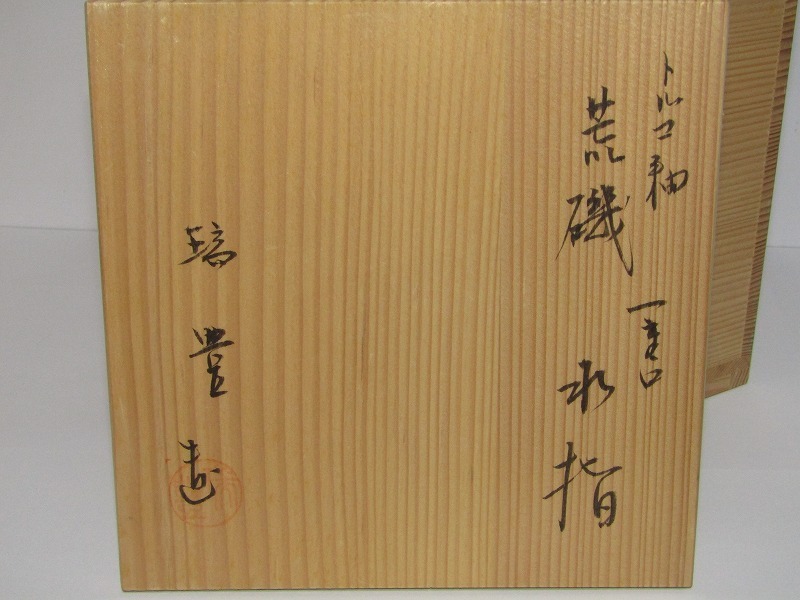 トルコ釉
荒磯
一重口
水指
豊造